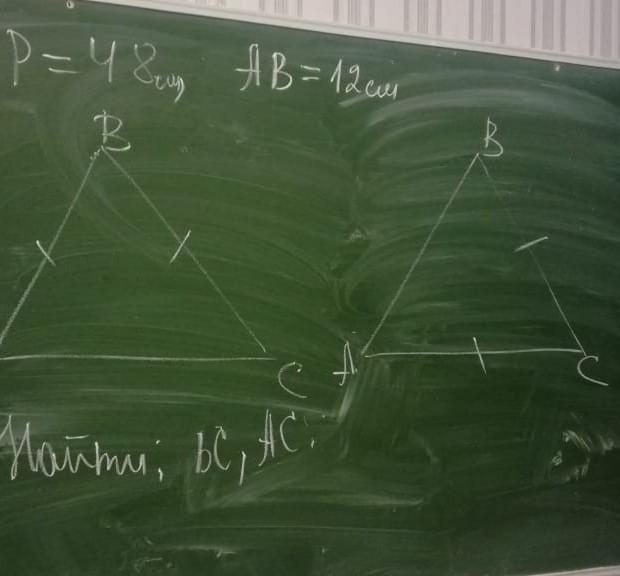 P = 48см, AB = 12см
B
B
C
A
C
Найти; BC, AC.